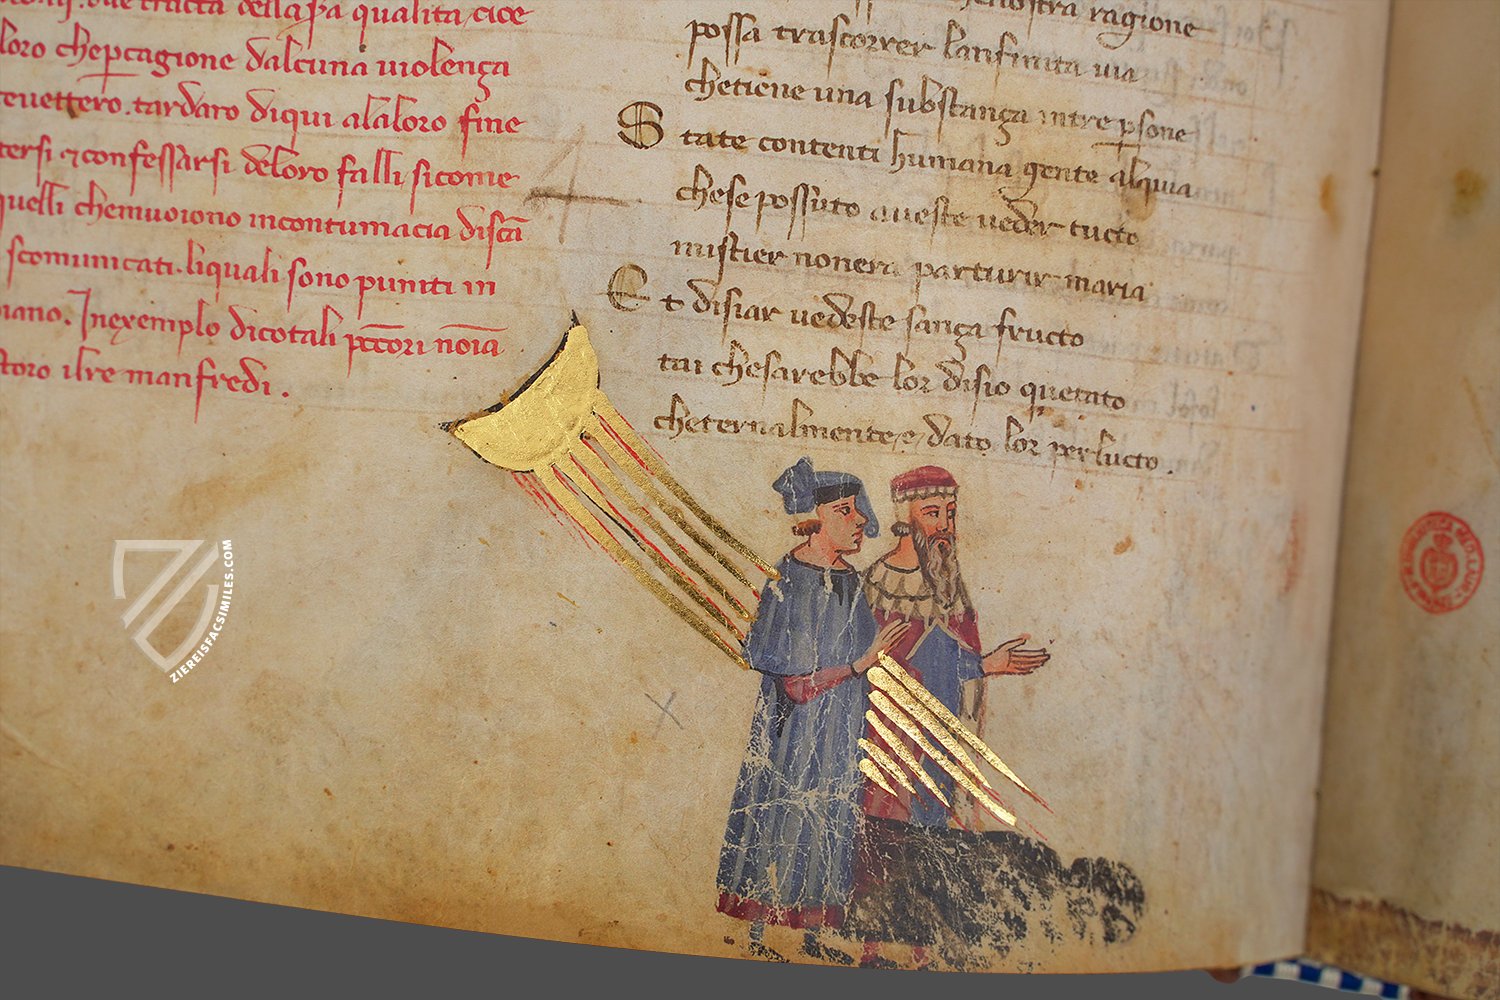 che tracta della pa qualita cioe
loro che pcagione dalcuna uiolença
teuettero. tardaro diqui alaloro fine
tersi ⁊confessarsi deloro falli sicome
quelli chemuoiono incontumacia discā
scomunicati. liquali sono puniti in
piano. Inexemplo dicotali pctōri nōia
storo ilre manfredi.
nostra ragione
possa trascorrer lanfinita uia
chetiene una substança intre psone
State contenti humana gente alquia
chese possuto aueste ueder tucto
mistier nonera parturir maria
Et disiar uedeste sança fructo
tai chesarebbe lor disio quetato
cheternalmente e dato lor perlucto.
4
ZIEREISFACSIMILES.COM